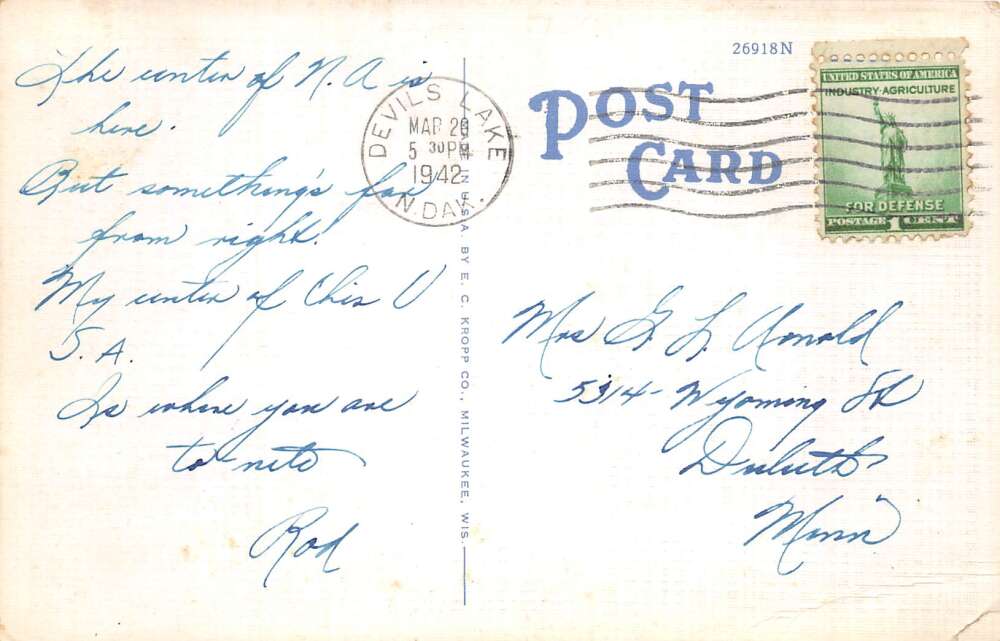 The center of N. A is
here.
But something's far
from right.
My center of this U
S. A.
Is where you are
to-nite
Rod
DEVILS LAKE
MAR 20
5 30 PM
1942
N. DAK.
MADE IN U.S.A. BY E. C. KROPP CO., MILWAUKEE, WIS.
26918N
POST
CARD
UNITED STATES OF AMERICA
INDUSTRY·AGRICULTURE
FOR DEFENSE
POSTAGE 1 CENT
Mrs G. L. Arnold
5314- Wyoming St
Duluth
Minn